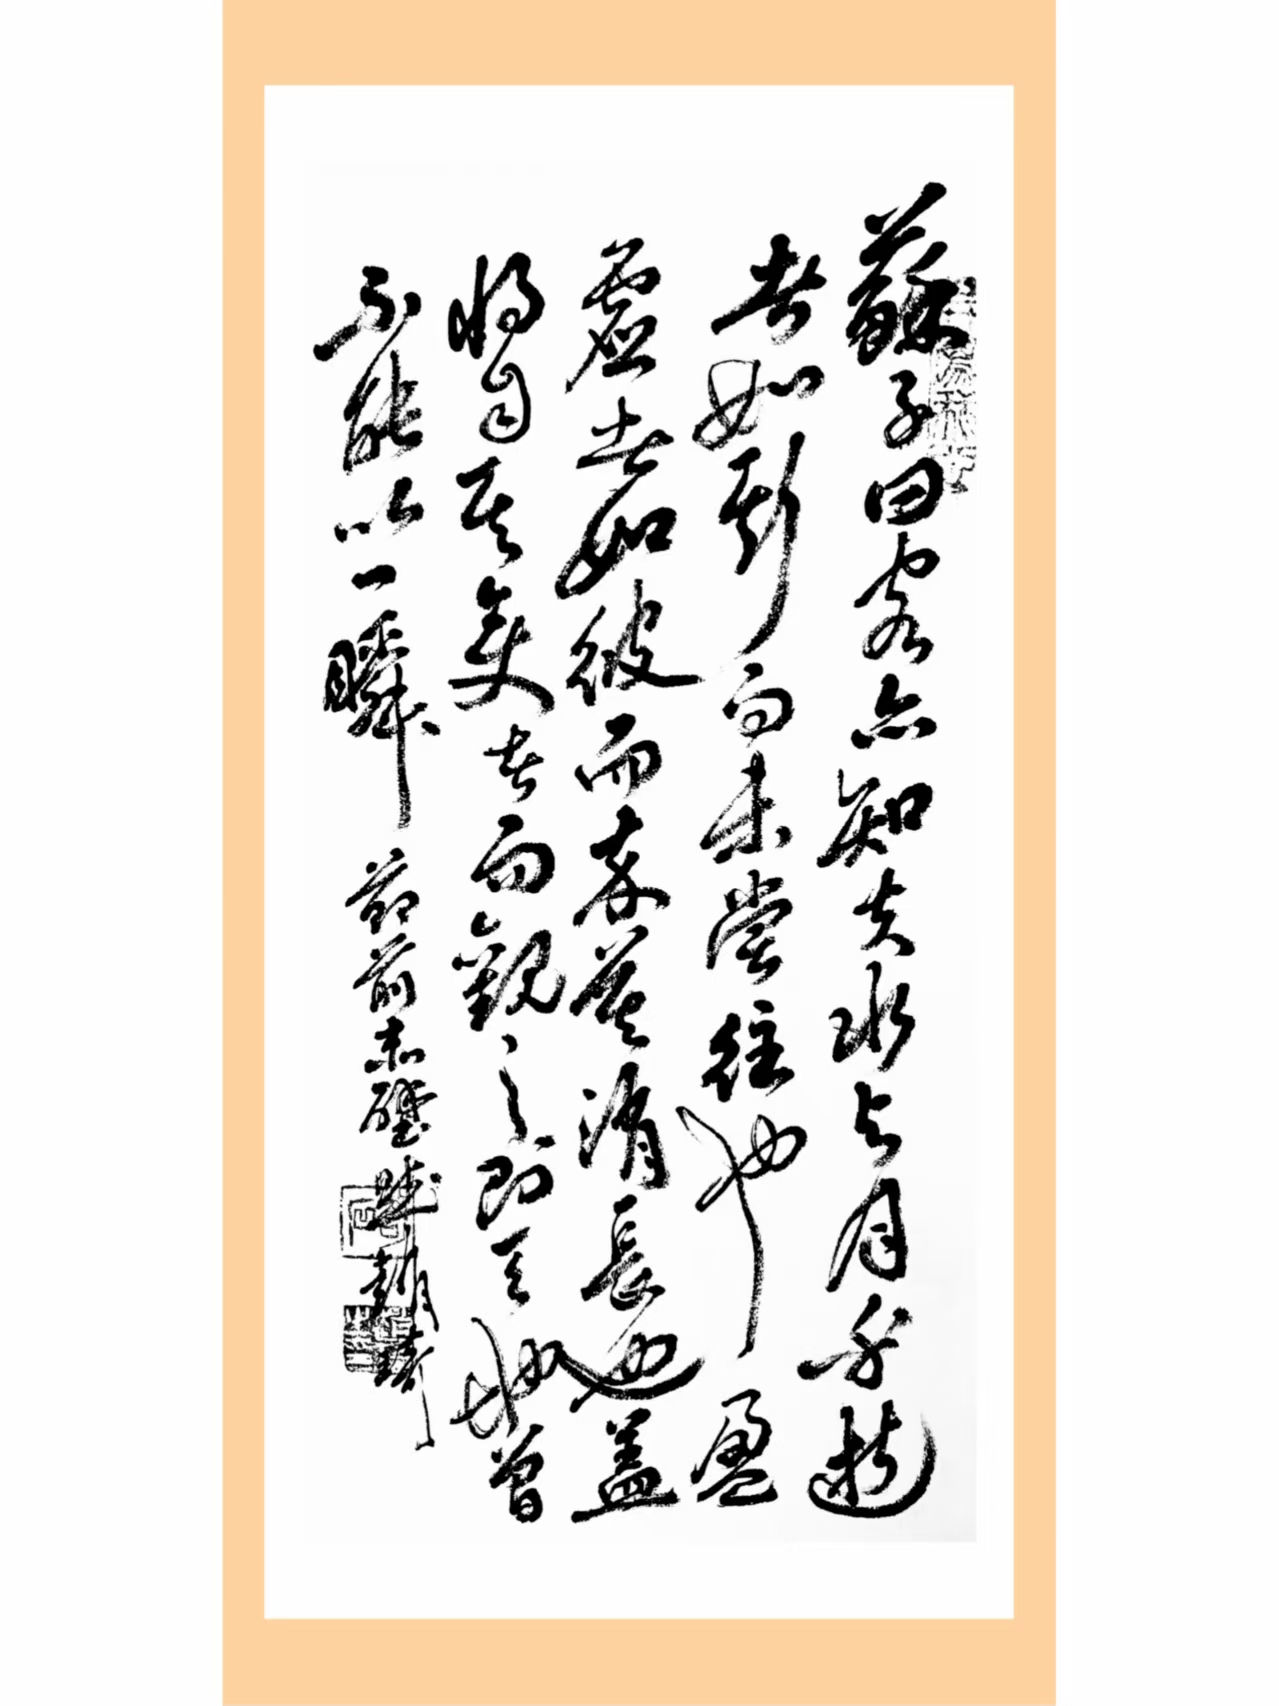 蘇子曰客亦知夫水与月乎逝
者如斯而未嘗往也盈
虛者如彼而卒莫消長也盖
將自其變者而觀之則天地曾
不能以一瞬 節前赤壁賦